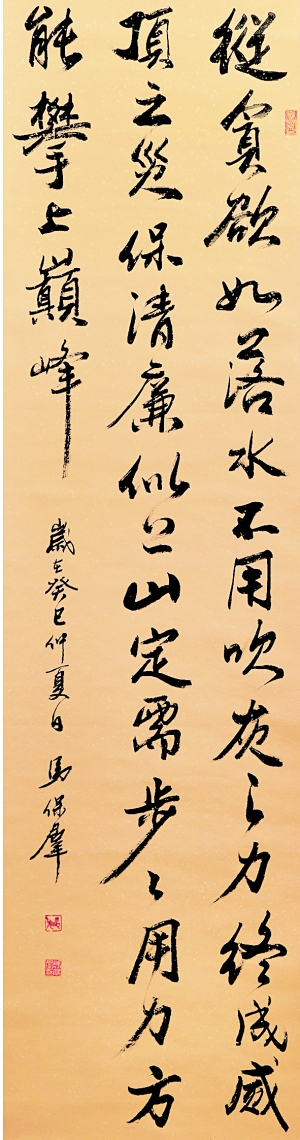 縱貪欲如落水不用吹灰之力終成威
頂之災保清廉似上山定需步々用力方
能攀上巔峰
歲在癸巳仲夏日 馬保羣